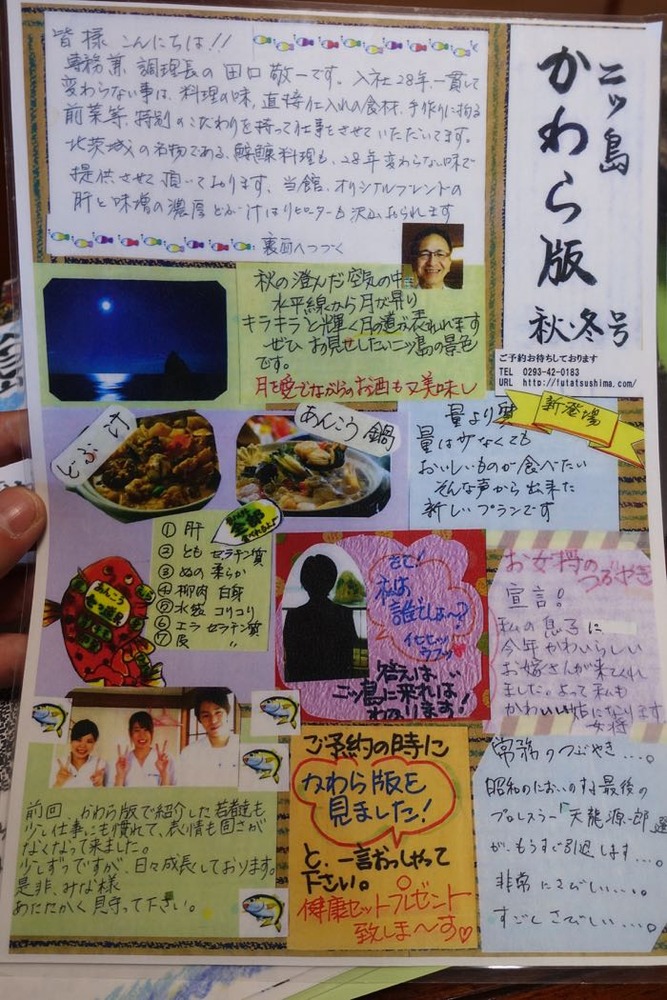 二ッ島
かわら版
秋・冬号
ご予約お待ちしております
TEL 0293-42-0183
URL http://futatsushima.com/
皆様 こんにちは!!
専務兼、調理長の田口敬一です。入社28年、一貫して
変わらない事は、料理の味、直接仕入れの食材、手作りに拘る
前菜等、特別のこだわりを持って仕事をさせていただいてます。
北茨城の名物である、鮟鱇料理も、28年変わらない味で
提供させて頂いております。当館、オリジナルブレンドの
肝と味噌の濃厚どぶ汁はリピーターも沢山おられます
裏面へつづく
秋の澄んだ空気の中
水平線から月が昇り
キラキラと輝く月の道が表われます
ぜひ お見せしたい二ッ島の景色
です。
月を愛でながらのお酒も又美味し
どぶ汁
あんこう鍋
新登場
量より質
量は少なくても
おいしいものが食べたい
そんな声から出来た
新しいプランです
① 肝
② とも ゼラチン質
③ ぬの 柔らか
④ 柳肉 白身
⑤ 水袋 コリコリ
⑥ エラ ゼラチン質
⑦ 皮 〃
あんこう
七つ道具
さて!
私は
誰でしょ〜?
イヒヒッ
ウフッ
答えは
二ッ島に来れば
わかります!
お女将の
つぶやき
宣言!
私の息子に
今年かわいらしい
お嫁さんが来てくれ
ました。よって私も
かわいい姑になります
女将
前回、かわら版で紹介した若者達も
少し仕事にも慣れて、表情も固さが
なくなって来ました。
少しずつですが、日々成長しております。
是非、みな様
あたたかく見守って下さい。
ご予約の時に
かわら版を
見ました!
と、一言おっしゃって
下さい。
健康セットプレゼント
致しま〜す
常務のつぶやき…。
昭和のにおいのする最後の
プロレスラー「天龍源一郎」選
が、もうすぐ引退します…。
非常にさびしい…。
すごくさびしい…。